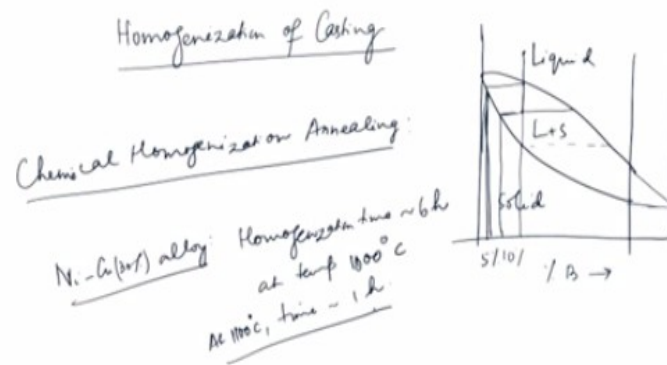 Homogenization of Casting
Chemical Homogenization Annealing:
Ni-Cu(30%) alloy: Homogenization time ~ 6 h
at temp 1000°C
At 1100°C, time ~ 1 h.
Liquid
L+S
Solid
5/10/
% B →